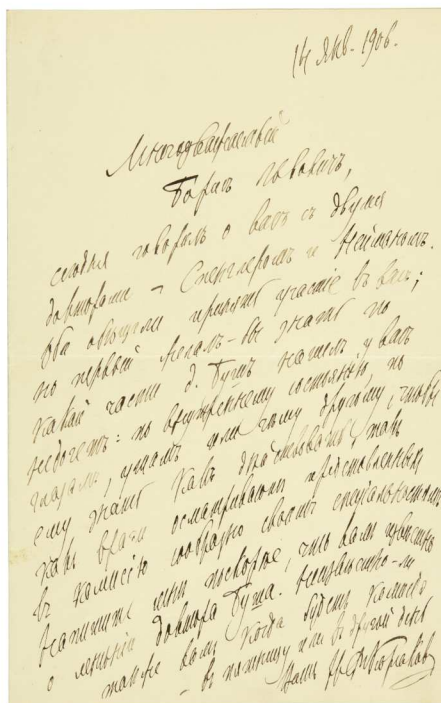 14 Янв. 1906.
Многоуважаемый
Борис Львович,
сегодня говорил о вас с двумя
докторами – Стенглером и Нейманом.
Оба обещали принять участие в вас;
но первый желал-бы знать по
какой части д. Буш нашел у вас
недочет: по внутреннему состоянию, по
глазам, ушам или чему другому, чтобы
ему знать как действовать, так
как врачи осматривают представленных
в комиссию сообразно своим специальностям
Напишите мне поскорее, что вам известно
о мнении доктора Буша. Неизвестно-ли
также вам когда будет комиссия
– в пятницу или в другой день
Ваш